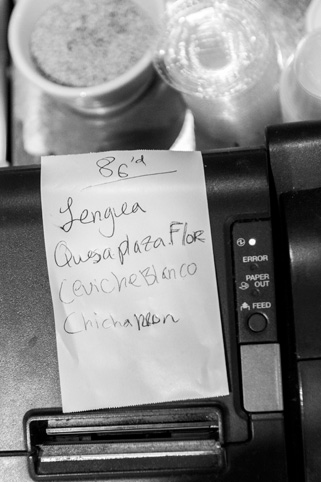 86'd
Lengua
Quesaplaza Flor
Ceviche Blanco
Chichapron
ERROR
PAPER
OUT
FEED